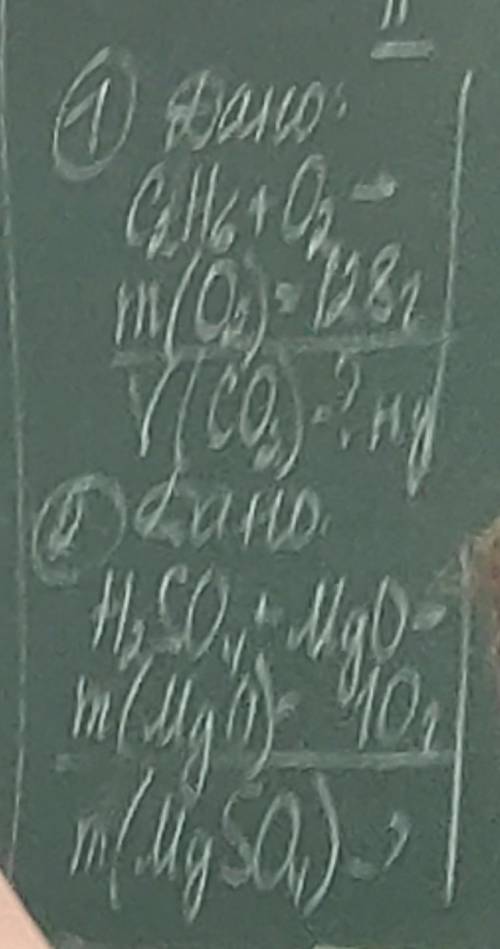 II
① Дано:
C₂H₆ + O₂ →
m(O₂) = 128г
V(CO₂) - ? н.у
② Дано:
H₂SO₄ + MgO →
m(MgO) = 10г
m(MgSO₄) - ?